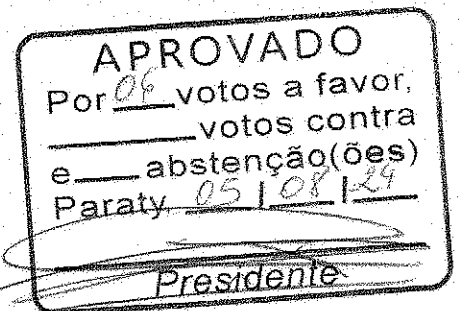 APROVADO
Por 06 votos a favor,
____votos contra
e___ abstenção(ões)
Paraty, 05 / 08 / 24
Presidente